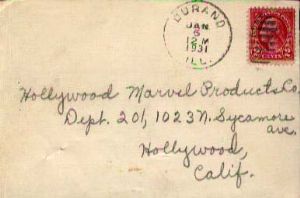 DURAND
JAN
5
12 M
1931
ILL.
2 CENTS 2
Hollywood Marvel Products Co.
Dept. 201, 1023 N. Sycamore
ave.
Hollywood,
Calif.